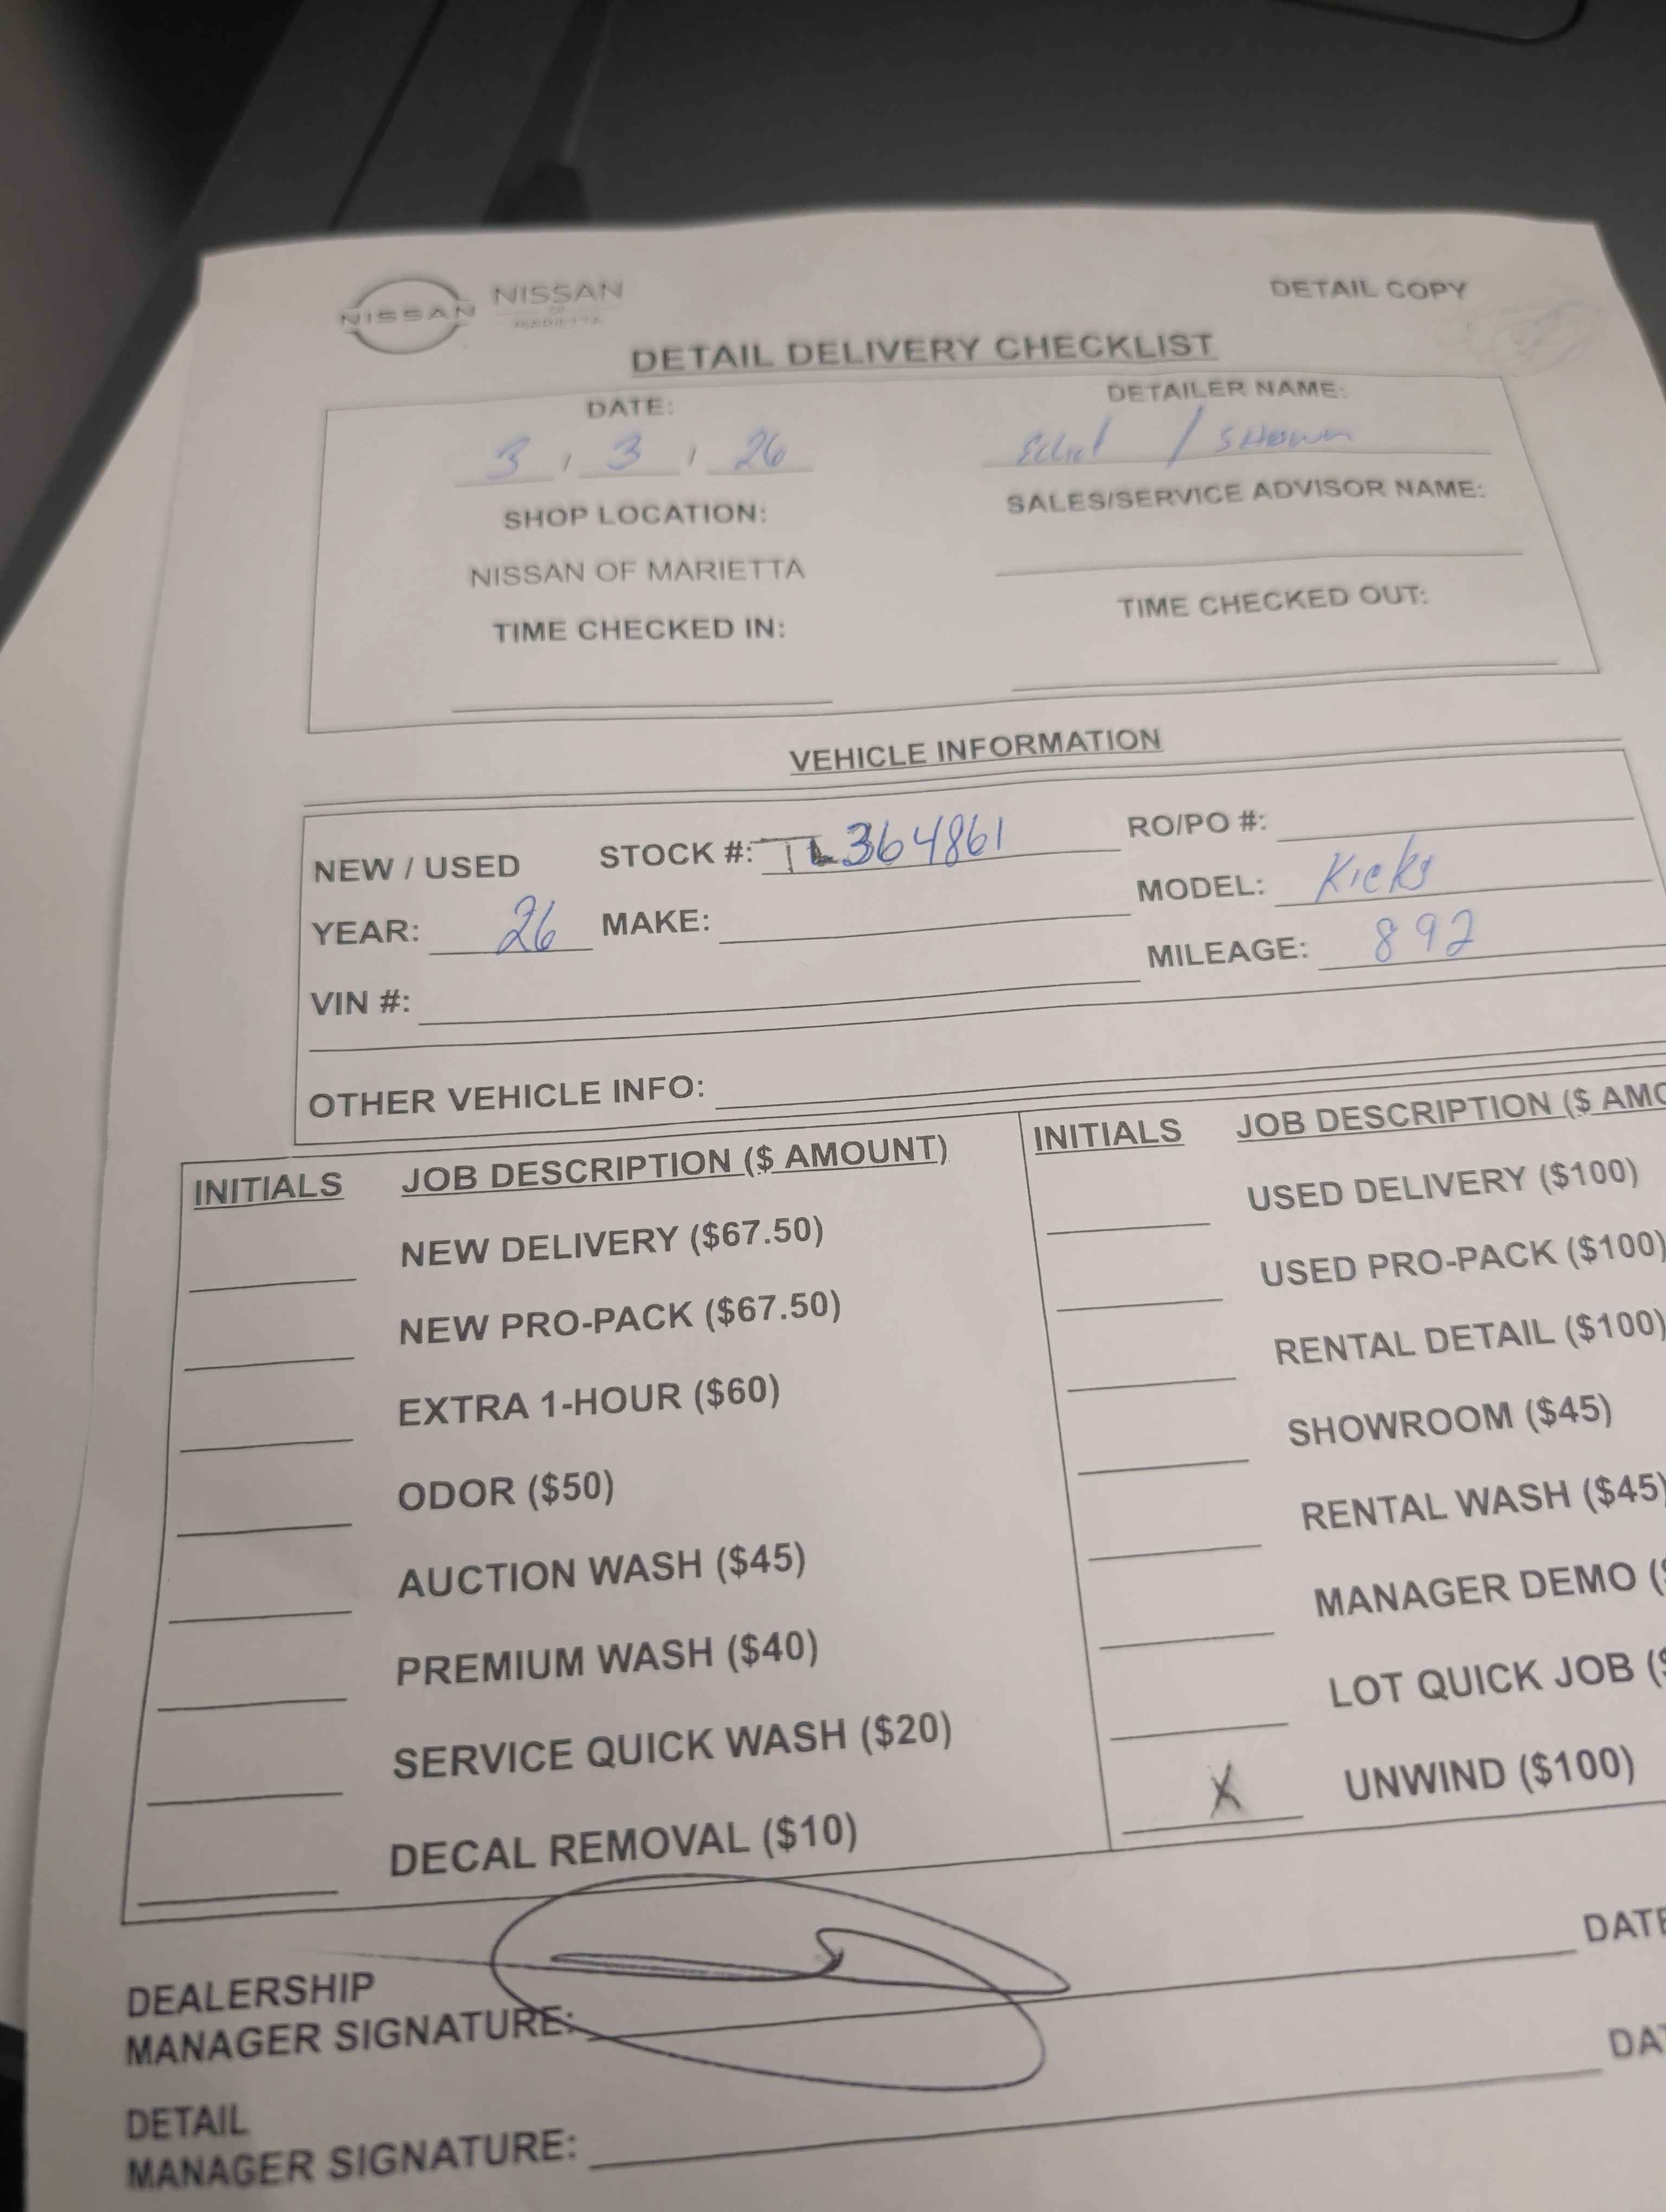 NISSAN NISSAN OF MARIETTA DETAIL COPY
DETAIL DELIVERY CHECKLIST
DATE: DETAILER NAME:
3 / 3 / 26 / Shawn
SHOP LOCATION: SALES/SERVICE ADVISOR NAME:
NISSAN OF MARIETTA
TIME CHECKED IN: TIME CHECKED OUT:
VEHICLE INFORMATION
NEW / USED STOCK #: TL364861 RO/PO #:
YEAR: 26 MAKE: MODEL: Kicks
VIN #: MILEAGE: 892
OTHER VEHICLE INFO:
INITIALS JOB DESCRIPTION ($ AMOUNT) INITIALS JOB DESCRIPTION ($ AMO
NEW DELIVERY ($67.50) USED DELIVERY ($100)
NEW PRO-PACK ($67.50) USED PRO-PACK ($100)
EXTRA 1-HOUR ($60) RENTAL DETAIL ($100)
ODOR ($50) SHOWROOM ($45)
AUCTION WASH ($45) RENTAL WASH ($45)
PREMIUM WASH ($40) MANAGER DEMO ($
SERVICE QUICK WASH ($20) LOT QUICK JOB ($
DECAL REMOVAL ($10) X UNWIND ($100)
DEALERSHIP
MANAGER SIGNATURE: DATE
DETAIL
MANAGER SIGNATURE: DAT